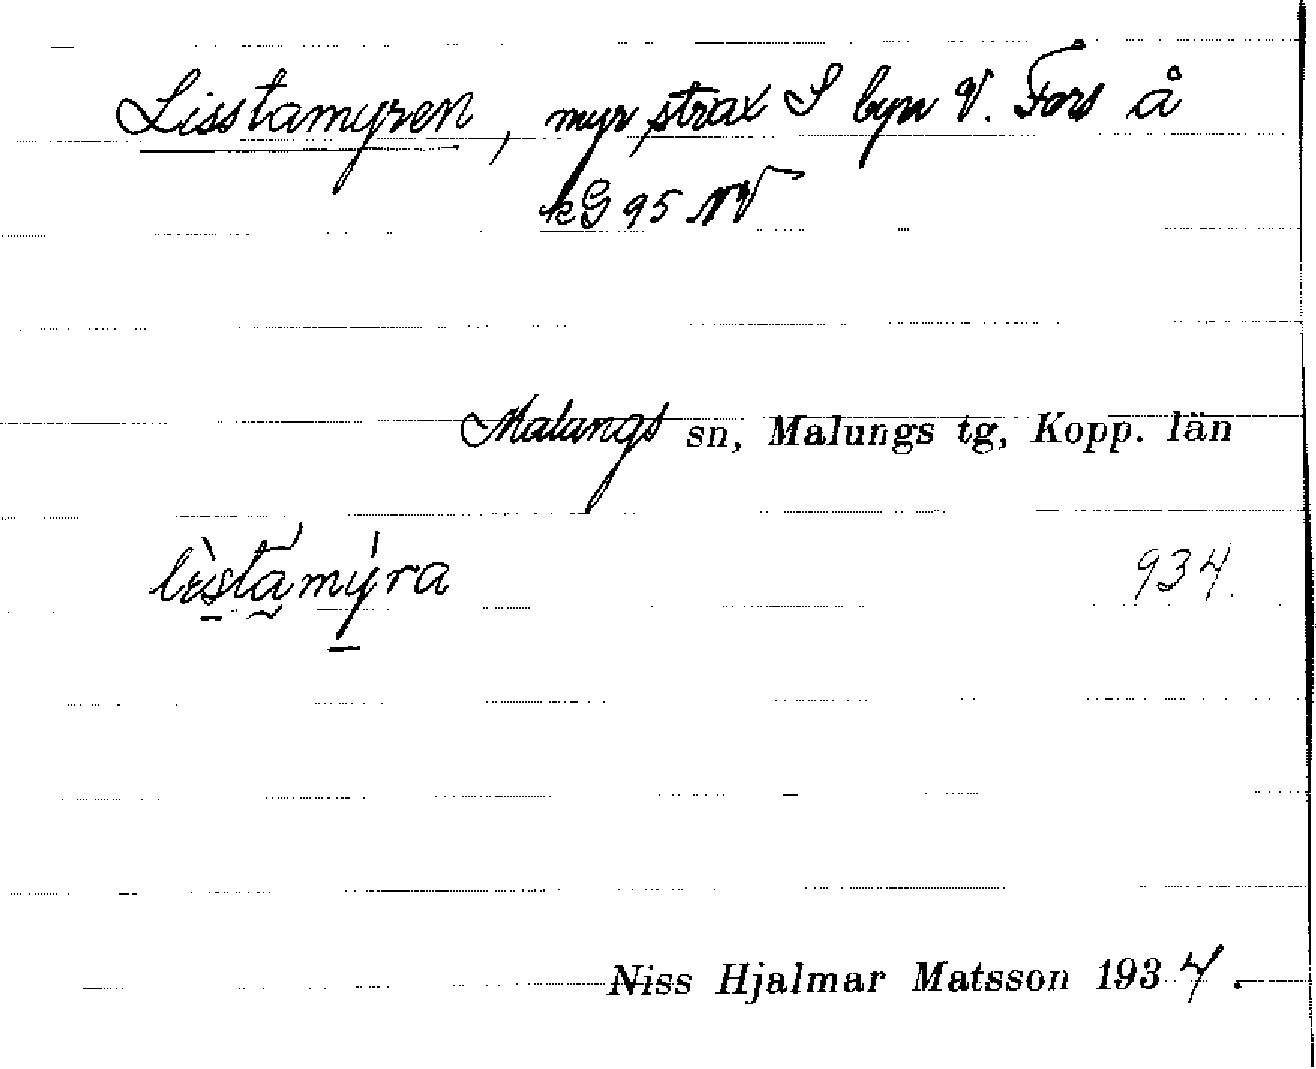 Lisstamyren, myr strax S byn V. Fors å
kG 95 NV
Malungs sn, Malungs tg, Kopp. län
lìstamýra
934.
Niss Hjalmar Matsson 1934.